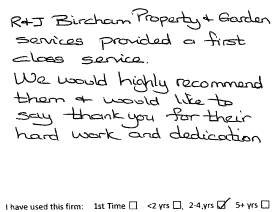 R+J Bircham Property + Garden
services provided a first
class service.
We would highly recommend
them + would like to
say thank you for their
hard work and dedication
I have used this firm: 1st Time ☐ <2 yrs ☐, 2-4,yrs ☑ 5+ yrs ☐